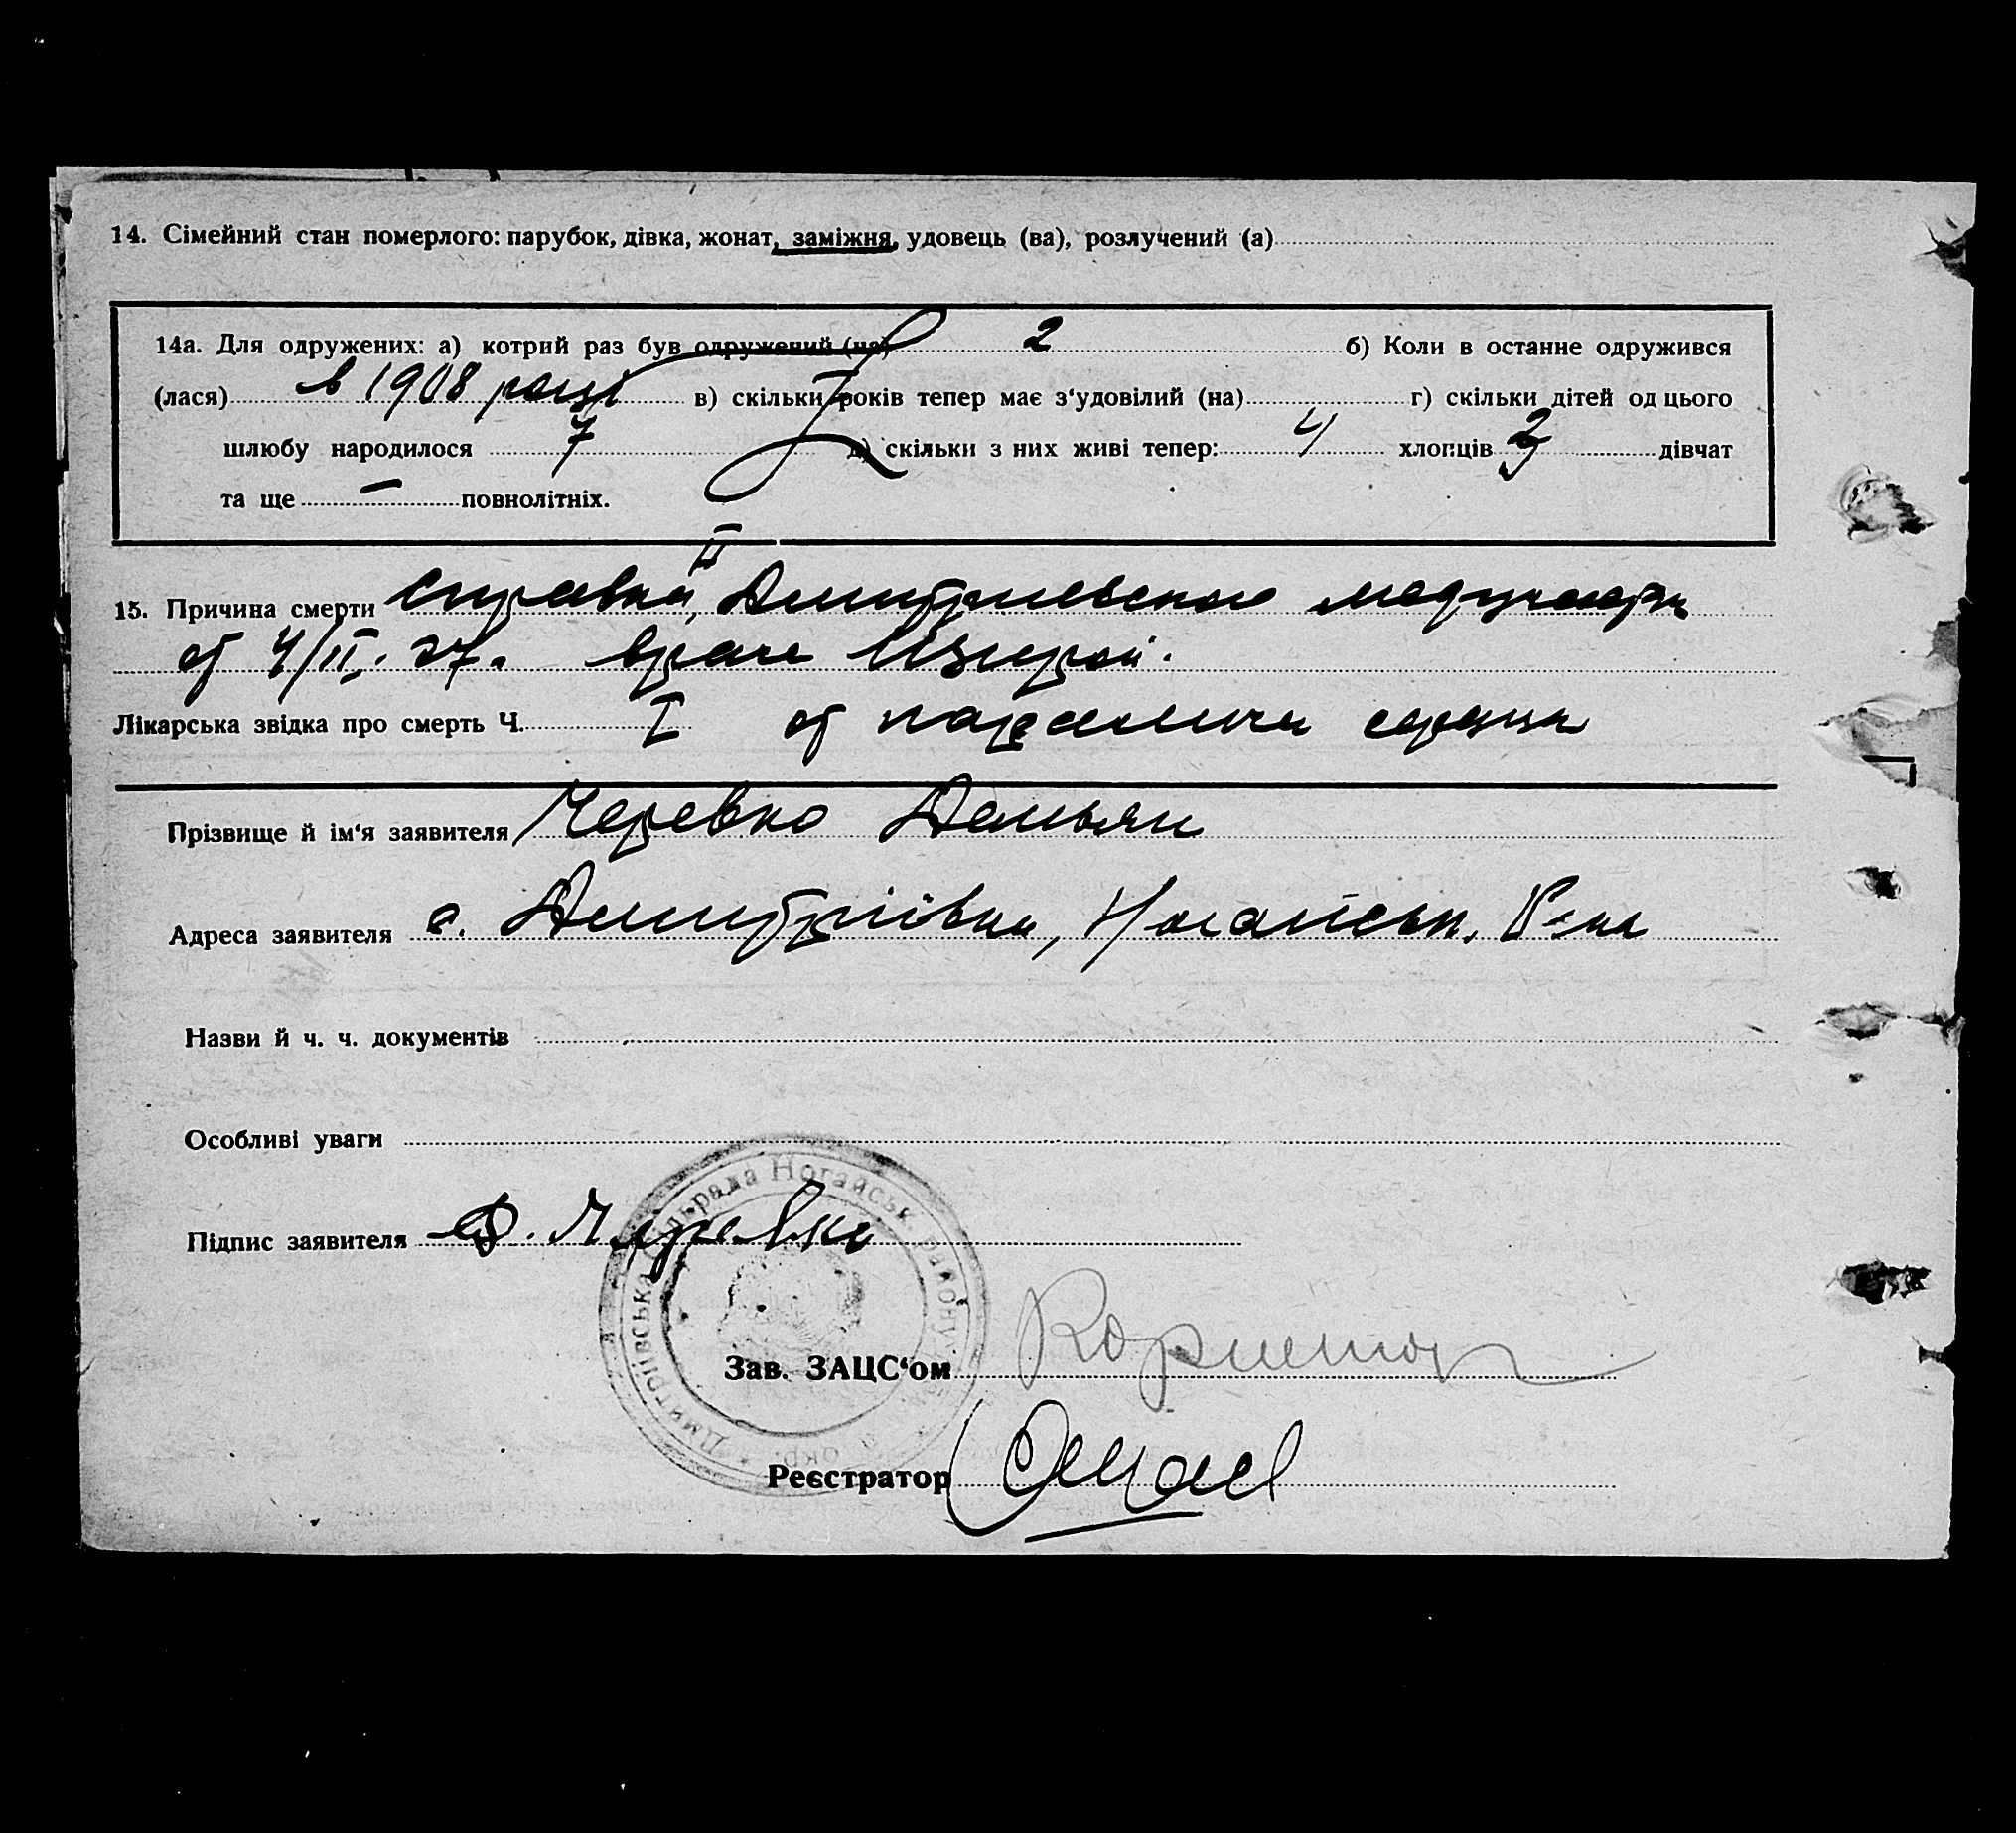 14. Сімейний стан померлого: парубок, дівка, жонат, заміжня, удовець (ва), розлучений (а)
14а. Для одружених: а) котрий раз був одружений (на) 2 б) Коли в останне одружився
(лася) в 1908 році в) скільки років тепер має з‘удовілий (на) г) скільки дітей од цього
шлюбу народилося 7 д) скільки з них живі тепер: 4 хлопців 3 дівчат
та ще — повнолітніх.
II
15. Причина смерти справка, Дмитриевского медучастк
от 4/II. 27. врача
Лікарська звідка про смерть Ч. I от паралича сердца
Прізвище й ім‘я заявителя Черевко Демьян
Адреса заявителя с. Дмитріївка, Ногайськ. Р-на
Назви й ч. ч. документів
Особливі уваги
Підпис заявителя Д. Черевко
Дмитрівська сільрада Ногайськ. району окр.
Зав. ЗАЦС‘ом
Реєстратор